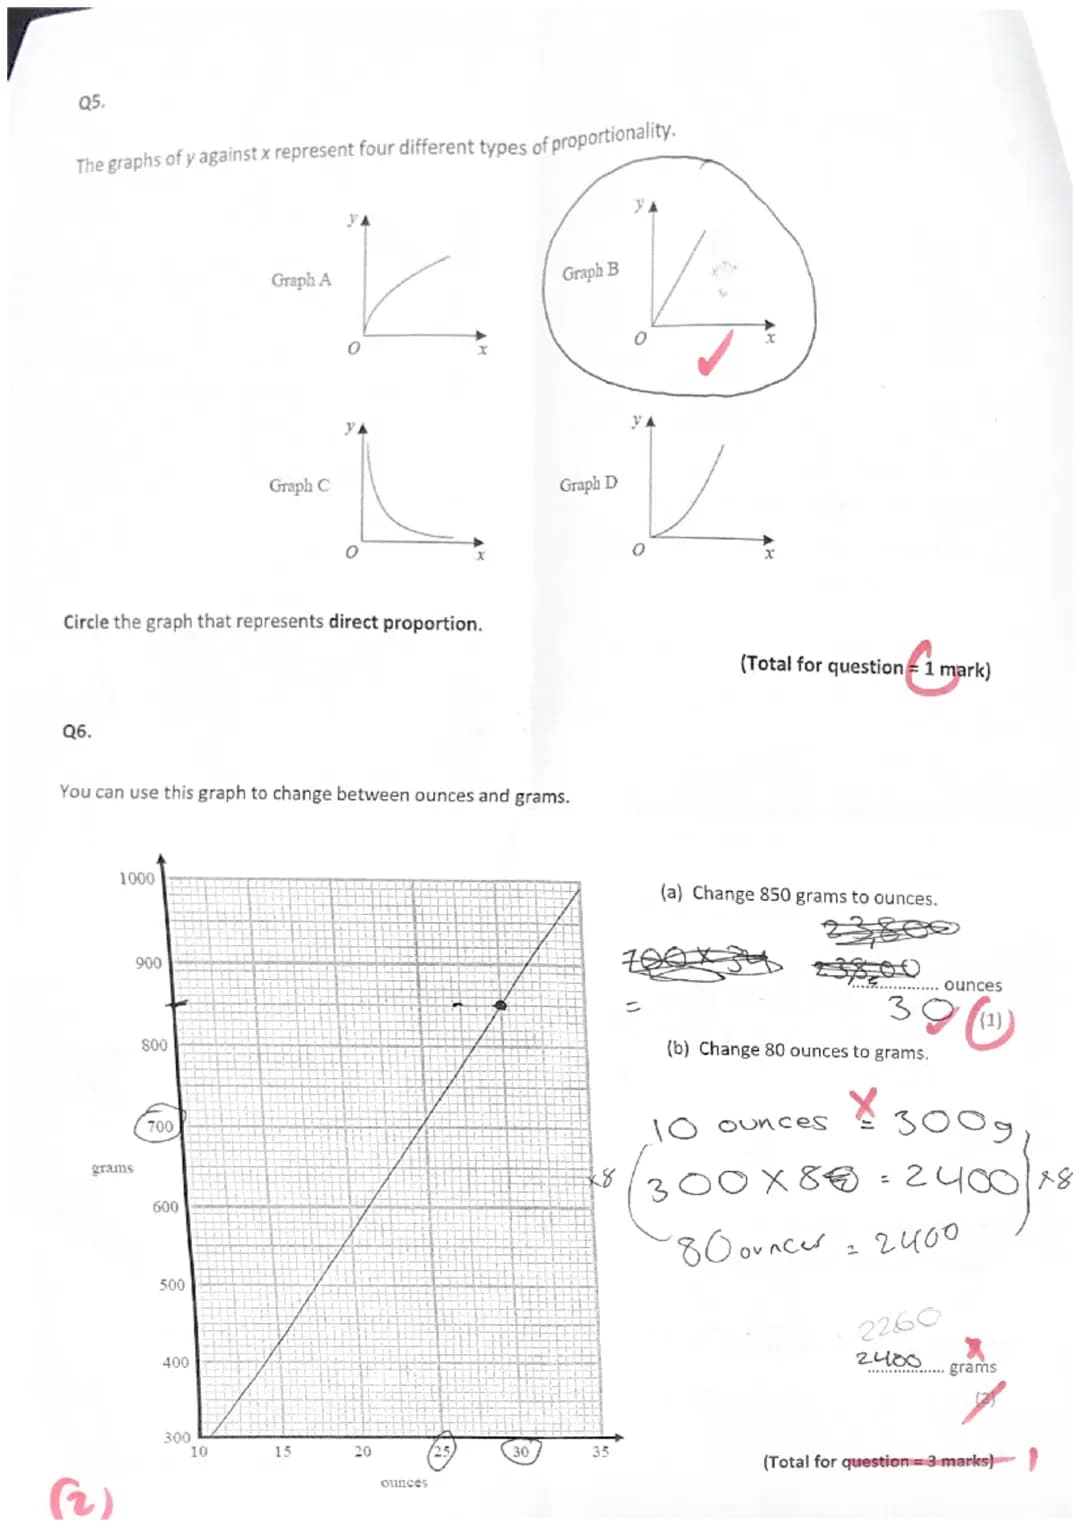 Q5.
The graphs of y against x represent four different types of proportionality.
y
Graph A
O
x
y
Graph B
O
x
y
Graph C
O
x
y
Graph D
O
x
Circle the graph that represents direct proportion.
(Total for question = 1 mark)
Q6.
You can use this graph to change between ounces and grams.
1000
900
800
700
grams
600
500
400
300
10 15 20 25 30 35
ounces
(a) Change 850 grams to ounces.
23,800
700 x 34
ounces
=
30
(1)
(b) Change 80 ounces to grams.
10 ounces = 300g
x8 300 x 8 = 2400 x8
80 ounces = 2400
2260
2400 grams
(2)
(Total for question = 3 marks) 1
(2)